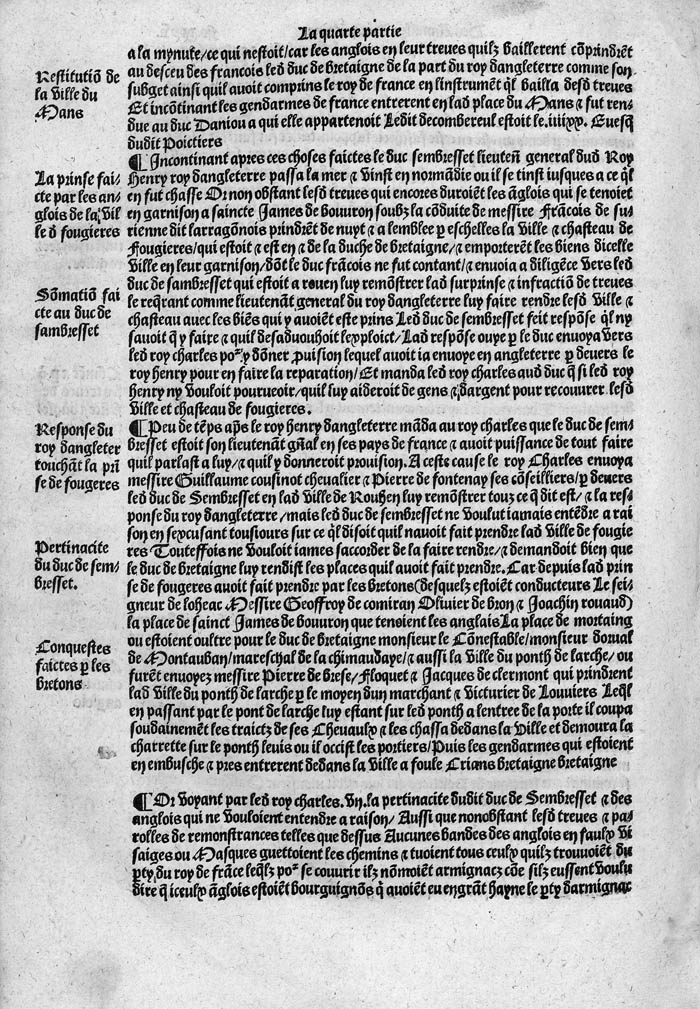 La quarte partie
a la mynute/ce qui nestoit/car les anglois en leur treues quilz baillerent cõprindrẽt
au desceu des francois led duc de bretaigne de la part du roy dangleterre comme son
subget ainsi quil auoit comprins le roy de france en linstrumẽt q̃l bailla desd treues
Et incõtinant les gendarmes de france entrerent en lad place du Mans ⁊ fut ren-
due au duc Daniou a qui elle appartenoit Ledit decombereul estoit le .iiiixx. Euesq̃
dudit Poictiers
Restitutiõ de
la ville du
Mans
¶ Incontinant apres ces choses faictes le duc sembresset lieuteñ general dud Roy
Henry roy dangleterre passa la mer ⁊ vinst en normãdie ou il se tinst iusques a ce q̃l
en fut chasse Or non obstant lesd treues qui encores duroiẽt les ãglois qui se tenoiẽt
en garnison a saincte James de bouuron soubz la cõduite de messire frãcois de su-
rienne dit larragõnois prindrẽt de nuyt ⁊ a lemblee p̱ eschelles la ville ⁊ chasteau de
Fougieres/qui estoit ⁊ est en ⁊ de la duche de bretaigne/⁊ emporterẽt les biens dicelle
ville en leur garnison/dõt le duc frãcois ne fut contant/⁊ enuoia a diligẽce vers led
duc de sambresset qui estoit a rouen luy remõstrer lad surprinse ⁊ infractiõ de treues
le req̃rant comme lieutenãt general du roy dangleterre luy faire rendre lesd ville ⁊
chasteau auec les biẽs qui y auoiẽt este prins Led duc de sembresset feit respõse q̃l ny
sauoit q̃ y faire ⁊ quil desaduouhoit lexploict/Lad respõse ouye p̱ le duc enuoya vers
led roy charles poᷣ y dõner p̱uision lequel auoit ia enuoye en angleterre p̱ deuers le
roy henry pour en faire la reparation/Et manda led roy charles aud duc q̃ si led roy
henry ny vouloit pourueoir/quil luy aideroit de gens ⁊ dargent pour recouurer lesd
ville et chasteau de fougieres.
La prinse fai-
cte par les an-
glois de la vil
le d fougieres
Sõmatiõ fai
cte au duc de
sambresset
¶ Peu de tẽps ap̃s le roy henry dangleterre mãda au roy charles que le duc de sem-
bresset estoit son lieutenãt gñal en ses pays de france ⁊ auoit puissance de tout faire
quil parlast a luy/⁊ quil y donneroit prouision. A ceste cause le roy Charles enuoya
messire Guillaume cousinot cheualier ⁊ Pierre de fontenay ses cõseilliers/p̱ deuers
led duc de Sembresset en lad ville de Rouhen luy remõstrer touz ce q̃ dit est/⁊ la res-
ponse du roy dangleterre/mais led duc de sembresset ne voulut iamais entẽdre a rai
son en sexcusant tousiours sur ce q̃l disoit quil nauoit fait prendre lad ville de fougie
res Touteffois ne vouloit iames saccorder de la faire rendre/⁊ demandoit bien que
le duc de bretaigne luy rendist les places quil auoit fait prendre. Car depuis lad prin
se de fougeres auoit fait prendre par les bretons (desquelz estoiẽt conducteurs Le sei-
gneur de loheac Messire Geoffroy de comiran Oliuier de bron ⁊ Joachin rouaud)
la place de sainct James de bouuron que tenoient les anglais La place de mortaing
ou estoient oultre pour le duc de bretaigne monsieur le Cõnestable/monsieur dorual
de Montauban/mareschal de la chimaudaye/⁊ aussi la ville du ponth de larche/ou
furẽt enuoyez messire Pierre de brese/Floquet ⁊ Jacques de clermont qui prindrent
lad ville du ponth de larche p̱ le moyen dun marchant ⁊ victurier de Louuiers Leq̃l
en passant par le pont de larche luy estant sur led ponth a lentree de la porte il coupa
soudainemẽt les traictz de ses cheuaulx ⁊ les chassa dedans la ville et demoura la
charrette sur le ponth leuis ou il occist les portiers/Puis les gendarmes qui estoient
en embusche ⁊ pres entrerent dedans la ville a foule Crians bretaigne bretaigne
Response du
roy dangleter
touchãt la pñ
se de fougeres
Pertinacite
du duc de sem-
bresset.
Conquestes
faictes p̱ les
bretons
¶ Or voyant par led roy charles. vii. la pertinacite dudit duc de Sembresset ⁊ des
anglois qui ne vouloient entendre a raison/Aussi que nonobstant lesd treues ⁊ pa-
rolles de remonstrances telles que dessus Aucunes bandes des anglois en faulx vi
saiges ou Masques guettoient les chemins ⁊ tuoient tous ceulx quilz trouuoiẽt du
p̱ty du roy de frãce leq̃lz poᷣ se couurir ilz nõmoiẽt armignacz cõe silz eussent voulu
dire q̃ iceulx ãglois estoiẽt bourguignõs q̃ auoiẽt eu en grãt hayne le p̱ty darmignac